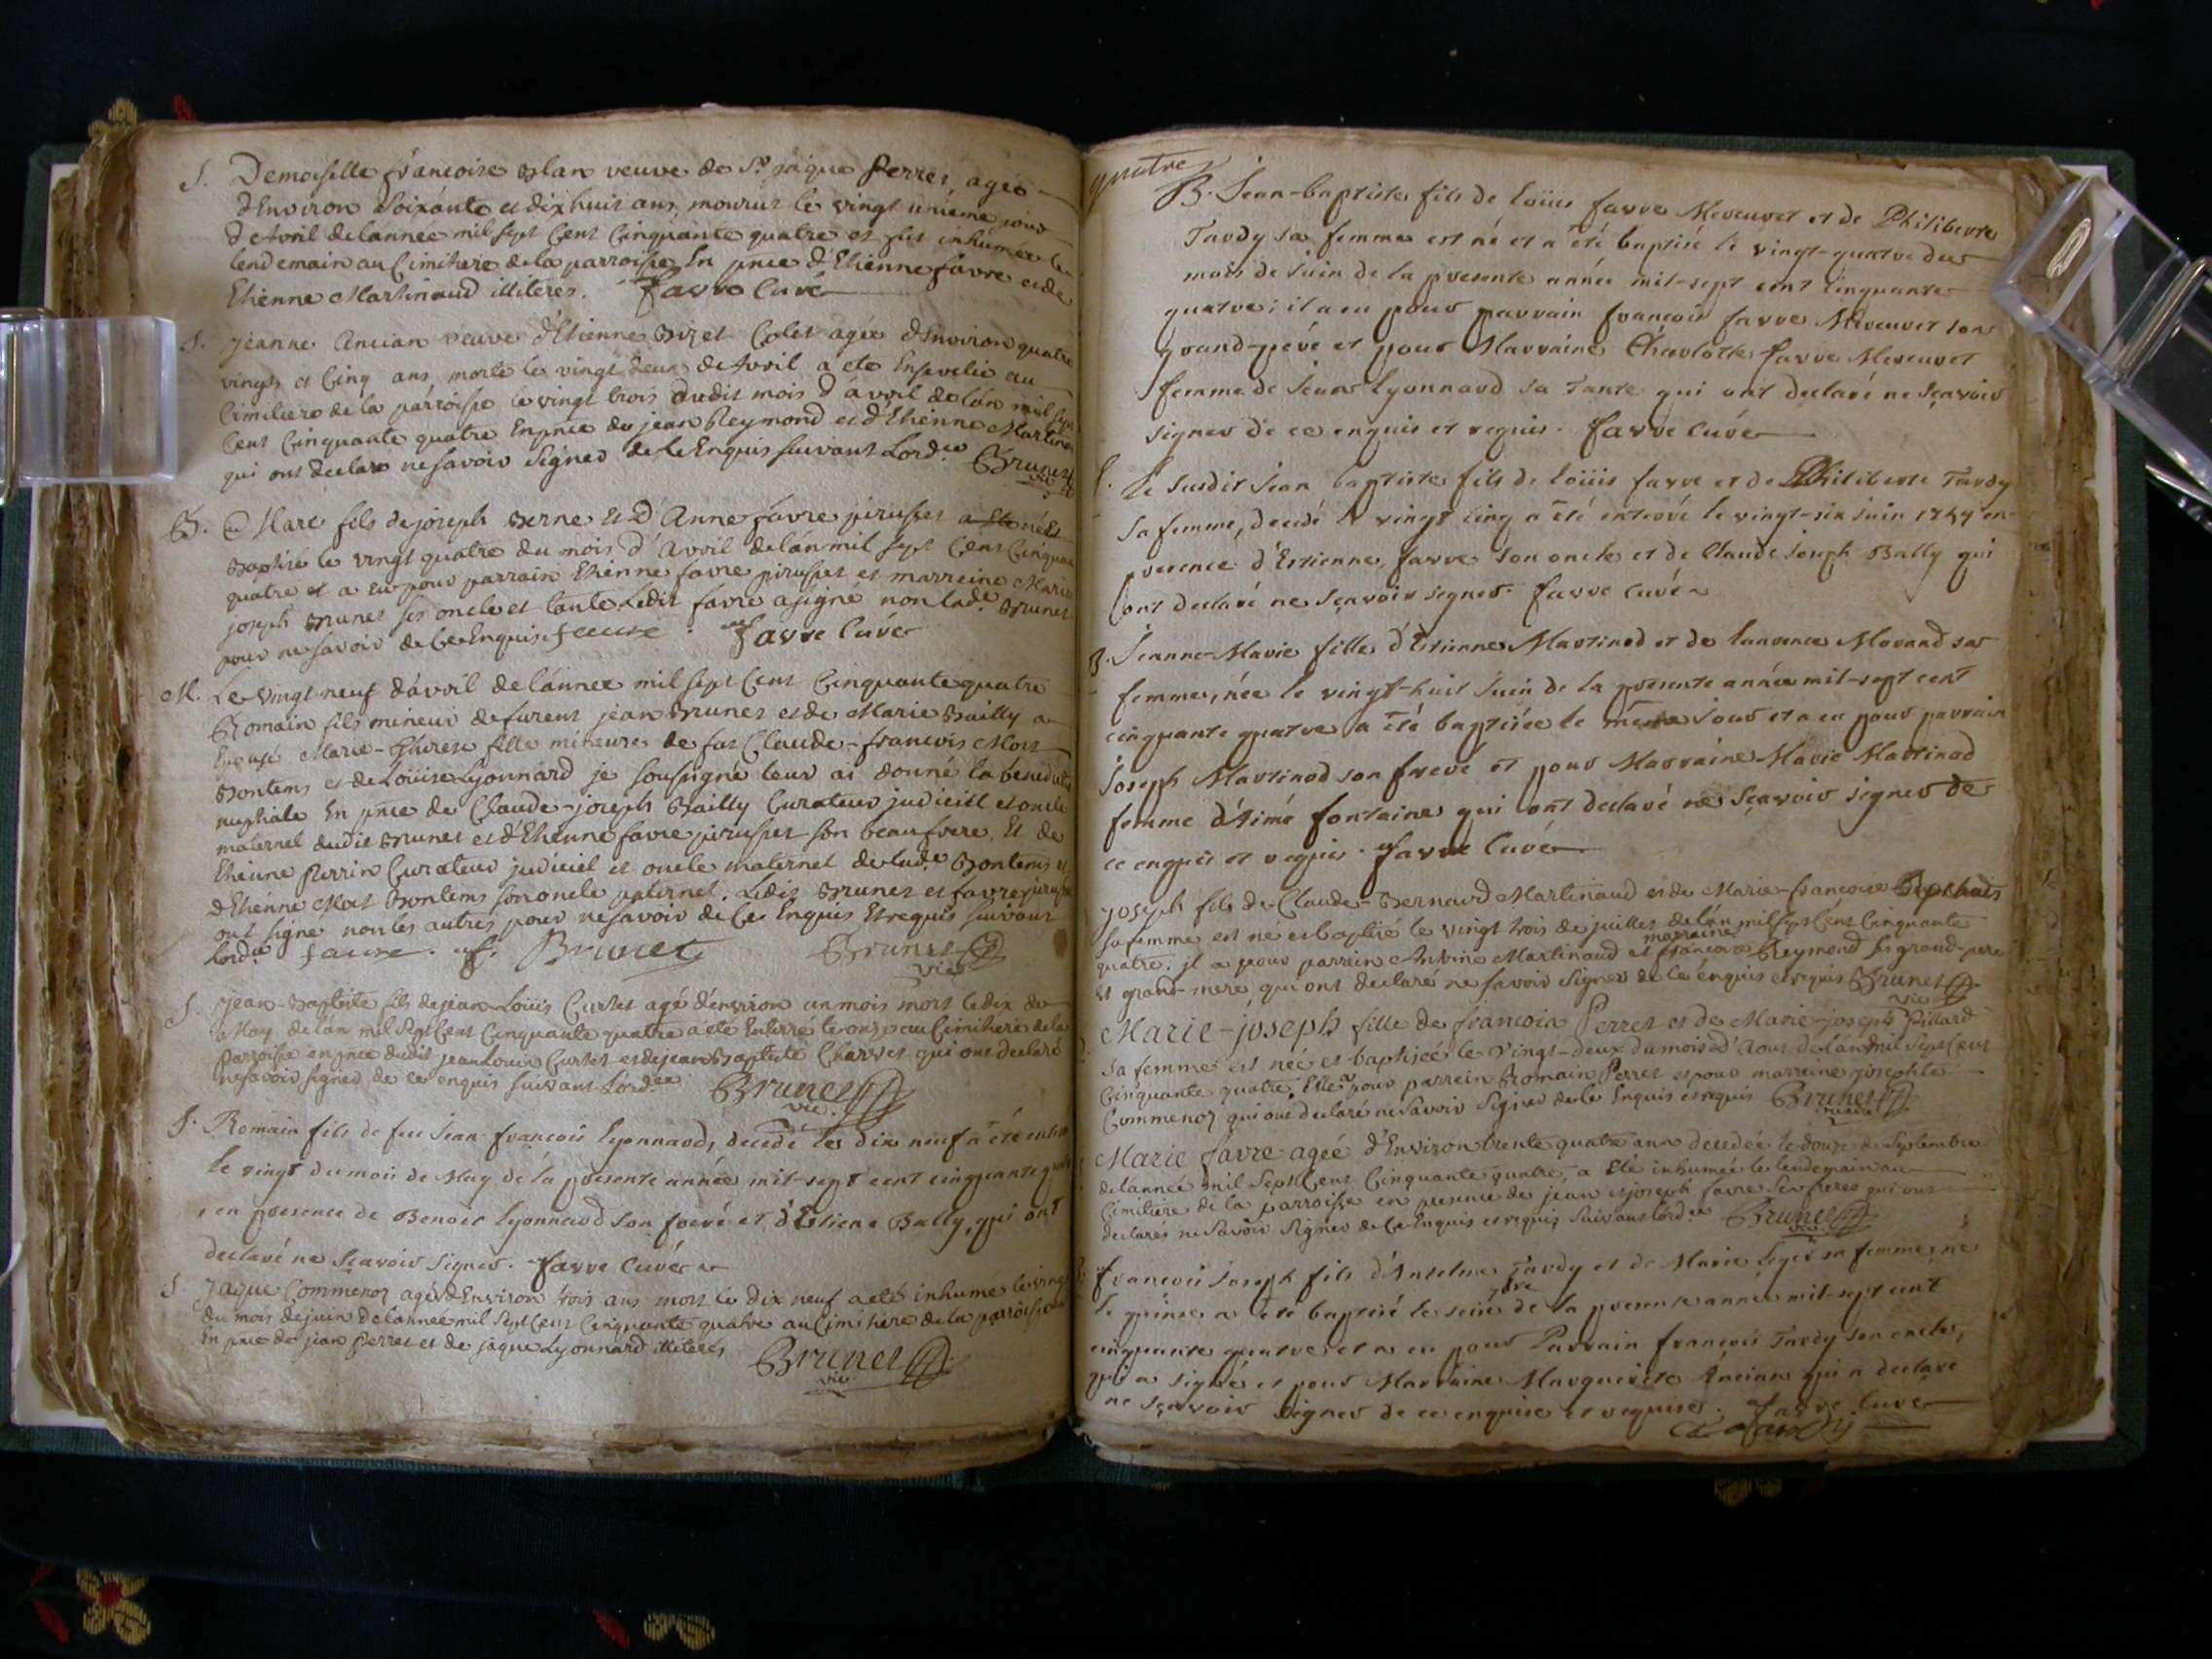 S. Demoiselle françoise Blan veuve de Sr jâque Perret, agée
d'Environ Soixante et dix huit ans, mourut le vingt unieme jour
d'Avril de lannée mil sept Cent Cinquante quatre et fut inhumée le
lendemain au Cimitiere de la parroisse En pnce d'Etienne favre et de
Etienne Martinaud illiteres. favre Curé
S. jeanne Ancian veuve d'Etienne Colet agée d'Environ quatre
vingts et Cinq ans, morte le vingt deux de Avril a ete Ensevelie au
Cimitiere de la parroisse le vingt trois dudit mois d'avril de l'an mil sept
Cent Cinquante quatre En pnce de jean Reymond et d'Etienne Martina
qui ont declaré ne savoir Signer de Ce Enquis suivant Lord.ce Brunet
vic
B. Marc fils de joseph Berne et d'Anne favre pirusset a Ete né et
Baptisé le vingt quatre du mois d'Avril de lan mil sept Cent Cinquan
quatre et a eu pour parrain Etienne favre pirusset et marreine Marie
joseph Brunet ses oncle et tante. Ledit favre a signé non lad.e Brunet
pour ne savoir de Ce Enquis. favre Curé
M. Le vingt neuf d'avril de lánnee mil sept Cent Cinquante quatre
Romain fils mineur de furent jean Brunet et de Marie Bailly a
Epousé Marie-Therese fille mineure de fut Claude-francois Mort
Bontems et de Loüise Lyonnard je soussigné leur ai donné la benedict
nuptiale En pnce de Claude-joseph Bailly Curateur judiciell et oncle
maternel dudit Brunet et d'Etienne favre pirusset son beaufrere. Et de
Etienne Perrin Curateur judiciel et oncle maternel de lad.e Bontems et
d'Etienne Mort Bontems son oncle paternel. Ledit Brunet et favre pirusse
ont signé non les autres pour ne savoir de Ce Enquis Et requis suivant
Lord.ce Brunet Brunet
vic
S. jean-Baptiste fils de jean-Loüis Curtet agé d'environ un mois mort le dix de
May de lán mil sept Cent Cinquante quatre a ete Enterre le onze au Cimitiere de la
Parroisse en pnce dudit jean Louis Curtet et de jean Baptiste Charvet qui ont declaré
ne savoir signer de ce enquis suivant Lord.ce Brunet
vic.
S. Romain fils de feu Jean-francois lyonnard, decedé le dix neuf a été enterré
le vingt du mois de May de la presente année mil-sept cent cinquante quatre
en presence de Benoit lyonnard son freré et d'Estiene Bally, qui ont
declaré ne sçavoir signer. favre Curé
S. Jaque Commenoz agé d'Environ trois ans mort le dix neuf a eté inhumé le vingt
du mois de juin de lannee mil Sept Cent Cinquante quatre au Cimitiere de la parroisse
En pnce de jean Perret et de jaque Lyonnard illiterés Brunet
vic
quatre
B. Jean-baptiste fils de loüis favre Meveuvet et de Philiberte
Tardy sa femme est né et a été baptisé le vingt-quatre du
mois de Juin de la presente année mil-sept cent cinquante
quatre; il a eu pour parrain francois favre Meveuvet son
grand-péré et pour Marraine Charlotte favre Meveuvet
femme de Jean Lyonnard sa Tante qui ont declaré ne sçavoir
signer de ce enquis et requis. favre Curé
S. le susdit Jean baptiste fils de loüis favre et de Philiberte Tardy
sa femme, decedé le vingt cinq a été enterré le vingt-six juin 1754 en
presence d'Estienne favre son oncle et de Claude Joseph Bally qui
ont declaré ne sçavoir signer. favre Curé
B. Jeanne-Marie fille d'Estienne Martinod et de laurence Morand sa
femme, née le vingt-huit Juin de la presente année mil-sept cent
cinquante quatre a été baptisée le même jour et a eu pour parrain
Joseph Martinod son freré et pour Marraine Marie Martinod
femme d'Aimé fontaine qui ont declaré ne sçavoir signer de
ce enquis et requis. favre Curé
joseph fils de Claude-Bernard Martinaud et de Marie-francoise
sa femme est né et baptisé le vingt trois de juillet de lán mil sept Cent Cinquante
quatre. il a pour parrein Antoine Martinaud et marraine francoise Reymond ses grand-pere
et grand-mere qui ont declaré ne savoir signer de ce enquis et requis Brunet
vic
Marie-joseph fille de francois Perret et de Marie-joseph Pillard
sa femme est née et baptisée le vingt-deux du mois d'Aout de lán mil Sept Cent
Cinquante quatre. Elle a pour parrein Romain Perret et pour marreine josephte
Commenoz qui ont declaré ne savoir Signer de Ce Enquis et requis Brunet
vicaire
Marie favre agée d'Environ trente quatre ans decedée le douze de Septembre
de lannée mil Sept Cent Cinquante quatre, a Eté inhumée le lendemain au
Cimitiere de la parroisse en presence de jean et joseph favre ses freres qui ont
declarés ne savoir Signer de Ce Enquis et requis suivant lord.ce Brunet
vic.
francois Joseph fils d'Antelme Tardy et de Marie leger sa femme, né
le quinze a été baptisé le seize 7bre de la presente année mil-sept cent
cinquante quatre et a eu pour Parrain francois Tardy son oncle,
qui a signé et pour Marraine Marguerite Ancian qui a declaré
ne sçavoir signer de ce enquise et requise. favre Curé
Tardy